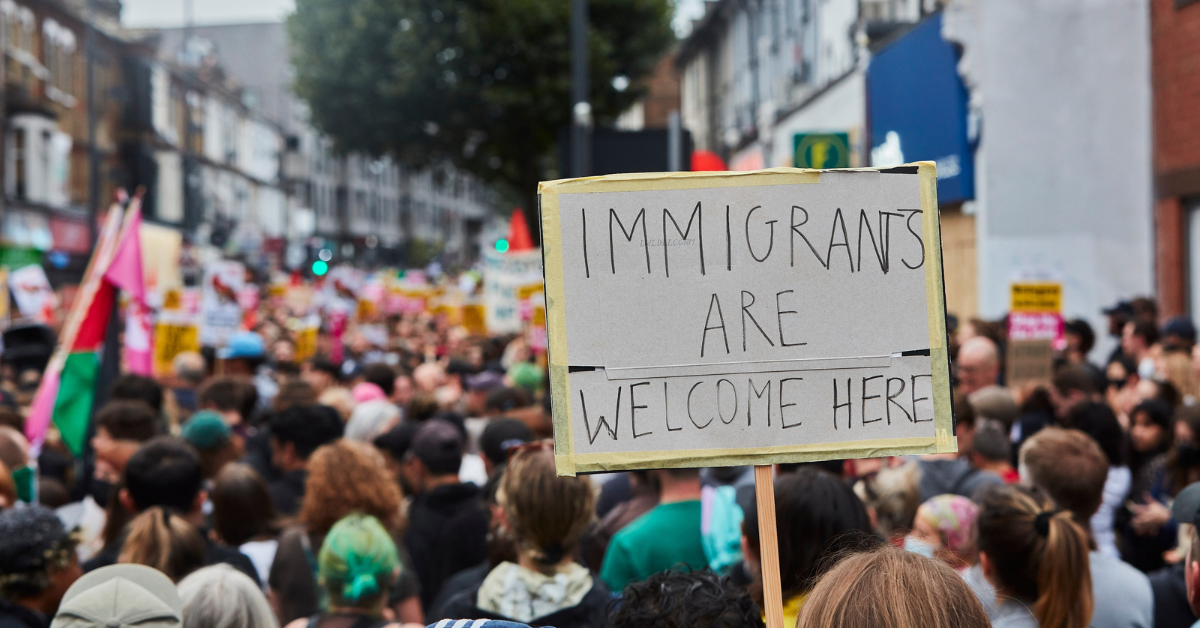 IMMIGRANTS
ARE
WELCOME HERE